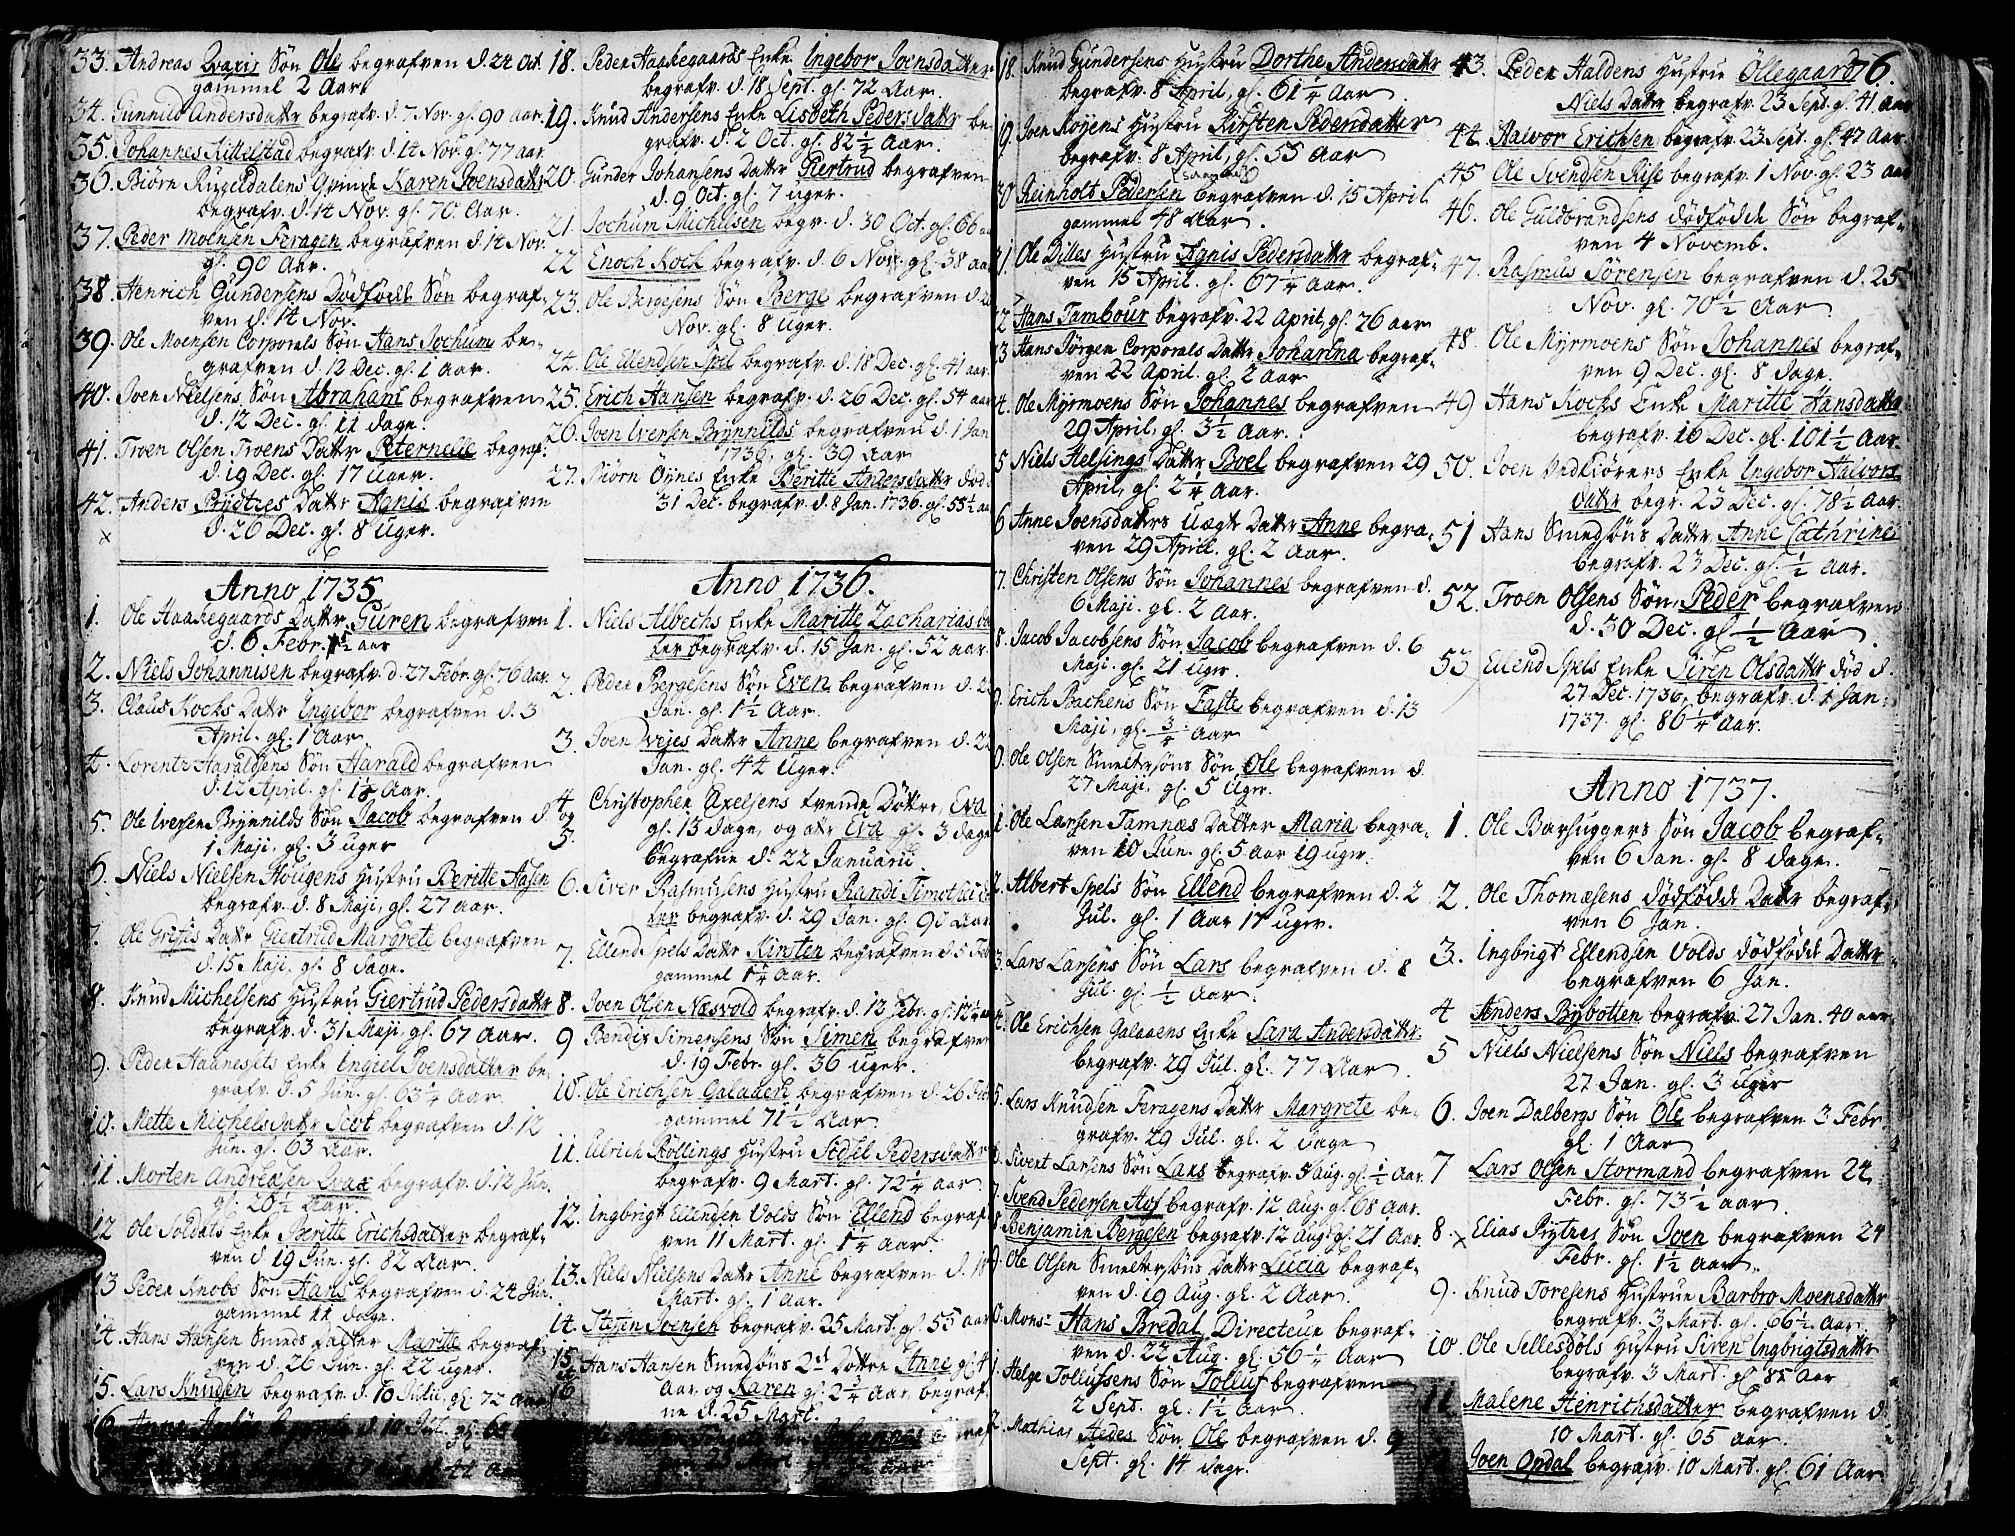 33. Andreas Qvaxis Søn Ole begrafven d. 24 Oct.
gammel 2 Aar
34. Gunnild Andersdattr begrafv. d. 7 Nov. gl. 90 aar.
35. Johannes Kittelstad begrafv. d. 14 Nov. gl. 77 aar.
36. Biørn Rugeldalens Qvinde Karen Joensdattr
begrafv. d. 14 Nov. gl. 70. Aar.
37. Peder Moensen Feragen begrafven d. 14 Nov.
gl. 90 Aar.
38. Henrich Gundersens Dødfødde Søn begraf-
ven d. 14 Nov.
39. Ole Moensen Corporals Søn Hans Jochum be-
grafven d. 12 Dec. gl. 1 Aar.
40. Joen Nielsens Søn Abraham begrafven
d. 12 Dec. gl. 11 dage.
41. Troen Olsen Troens Dattr Peternelle begraf.
d. 19 Dec. gl. 17 Uger.
42. Anders Prÿdtzes Dattr Agnis begrafven
d. 26 Dec. gl. 8 Uger.
Anno 1735.
1. Ole Haakegaards Dattr Guren begrafven
d. 6 Febr. aar
2. Niels Johannisen begrafv. d. 27 Febr. gl. 76 Aar.
3. Claus Kocks Dattr Ingebor begrafven d. 3
April. gl. 1 Aar
4. Lorentz Haraldsens Søn Harald begrafven
d. 12 April. gl. Aar.
5. Ole Iversen Brÿnnilds Søn Jacob begrafven d.
1 Maji, gl. 3 uger
6. Niels Nielsen Hougens Hustru Beritte Aasen
begrafv. d. 8 Maji, gl. 27 aar.
7. Ole Grisis Dattr Giertrud Margrete begrafven
d. 15 Maji, gl. 8 dage.
8. Knud Michelsens Hustru Giertrud Pedersdattr
begrafv. d. 31 Maji, gl. 67 Aar.
9. Peder Haanesets Enke Engiel Joensdatter be-
grafv. d. 5 Jun. gl. 63 1/4 Aar.
10. Mette Michelsdattr Scot begrafven d. 12
Jun. gl. 63 Aar.
11. Morten Andreasen Qvax begrafv. d. 12 Jun.
gl. 20 1/2 Aar.
12 Ole Soldats Enke Beritte Erichsdatter begraf-
ven d. 19 Jun. gl. 82 Aar.
13 Peder Knobs Søn Hans begrafven d. 24 Jun.
gammel 11 dage.
14. Hans Hansen Smeds Datter Maritte begraf-
ven d. 26 Jun. gl. 22 uger.
15. Lars Knudsen begrafv. d. 10 Julii. gl. 72 Aar
16. Anne d. 10 Jul. gl.
44 Aar
18. Peder Haakegaards Enke Ingebor Joensdatter
begrafv. d. 18 Sept. gl. 72 Aar.
19. Knud Andersens Enke Lisbeth Pedersdattr be-
grafv. d. 2 Oct. gl. 82 1/2 Aar.
20. Gunder Johansens Dattr Giertrud begrafven
d. 9 Oct. gl. 7 uger.
21. Jochum Michelsen begr. d. 30 Oct. gl. 66
22 Enoch Kock begrafv. d. 6 Nov. gl. 38 aar
23. Ole Bergesens Søn Berge begrafven d.
Nov. gl. 8 uger.
24. Ole Ellendsen Spel begrafv. d. 18 Dec. gl. 41 aar.
25. Erich Hansen begrafv. d. 26 Dec. gl. 54 aar
26. Joen Iversen Brÿnnilds begrafven d. 1 Jan
1736. gl. 39 Aar
27. Biørn Öÿnes Enke Beritte Andersdattr død
31 Dec. begrafv. d. 8 Jan. 1736. gl. 55 1/2 aar
Anno 1736.
1. Niels Albechs Enke Maritte Zacharias dat
ter begrafv. d. 15 Jan. gl. 52 aar.
2. Peder Bergesens Søn Even begrafven d.
Jan. gl. 1 1/2 Aar.
3. Joen Dattr Anne begrafven d.
Jan. gl. 44 Uger.
4 Christopher Axelsens tvende Døttre, Eva
og gl. 13 dage, og attr Eva gl. 3 dage
5. begrafne d. 22 Januarii
6. Siver Rasmusens Hustru Randi Timothei dat
ter begrafv. d. 29 Jan. gl. 90 Aar.
7. Ellend Spels Dattr Kirsten begrafven d. 5 Feb
gammel 1 1/4 Aar.
8. Joen Olsen Næsvold begrafv. d. 13 Febr. gl.
9 Bendix Simensens Søn Simen begrafven
d. 19 Febr. gl. 36 uger.
10. Ole Erichsen Galaaen begrafven d. 26 Feb
gammel 71 1/2 Aar.
11. Ellrich Röllings Hustru Sidsel Pedersdatter
begrafv. 9 Mart. gl. 72 1/4 aar.
12. Ingbrigt Ellendsen Volds Søn Ellend begraf
ven 11 Mart. gl. 1 1/4 Aar.
13. Niels Nielsens Dattr Anne begrafven d. 18
Mart. gl. 1 aar.
14. Steffen Joensen begrafv. 25 Mart. gl. 55 aar
15. Hans Hansen Smedsøns 2de Døttre Anne gl. 4
16 Aar, og Karen gl. 2 3/4 Aar, begraf
ne d. 25 Mart.
Søn Johannes begraf
ven 25 Mart
18. Knud Gundersens Hustru Dorthe Andersdattr
begrafv. 8 April, gl. 61 1/4 Aar
19 Joen Moÿens Hustru Kirsten Pedersdatter
begrafv. 8 April, gl. 55 Aar
20 Reinholt Pedersen begrafven d. 15 April
gammel 48 Aar.
21. Ole Dilles Hustru Agnis Pedersdattr begraf-
ven 15 April. gl. 67 1/4 Aar.
22 Hans Tambour begrafv. 22 April, gl. 26 aar
23 Hans Jørgen Corporals Dattr Johanna begraf-
ven 22 April. gl. 2 Aar
4. Ole Mÿrmoens Søn Johannes begrafven
29 April, gl. 3 1/2 Aar.
5 Niels Helsings Dattr Boel begrafven 29
April, gl. 2 1/4 Aar.
6 Anne Joensdatters Uægte Dattr Anne begra-
ven 29 April. gl. 2 Aar.
7. Christen Olsens Søn Johannes begrafven d.
6 Maji. gl. 2 Aar.
8. Jacob Jacobsens Søn Jacob begrafven d. 6
Maji. gl. 21 uger
9. Erich Bachens Søn Faste begrafven d. 13
Maji, gl. 3/4 Aar
0. Ole Olsen Smeltersøns Søn Ole begrafven d.
27 Maji, gl. 5 uger.
1. Ole Larsen Tamnæs Datter Maria begra-
ven 10 Jun. gl. 5 aar 19 uger.
2. Albert Spels Søn Ellend begrafven d. 2
Jul. gl. 1 Aar 17 uger.
3. Lars Larsens Søn Lars begrafven d. 8
Jul. gl. 1/2 Aar.
4. Ole Erichsen Galaaens Enke Sara Andersdattr
begrafv. 29 Jul. gl. 77 Aar.
5. Lars Knudsen Feragens Dattr Margrete be-
grafv. 29 Jul. gl. 2 dage
6. Sivert Larsens Søn Lars begrafv. 5 Aug. gl. 1/2 Aar.
7. Svend Pedersen Hof begrafv. 12 Aug. gl. 68 Aar.
8. Benjamin Bergesen begrafv. 12 Aug. gl. 21 Aar.
9. Ole Olsen Smeltersøns Dattr Lucia begraf-
ven d. 19 Aug. gl. 2 Aar.
0. Mons: Hans Bredal, Directeur begraf-
ven d. 22 Aug. gl. 56 1/4 Aar
1. Helge Tollufsens Søn Tolluf begrafven
2 Sept. gl. 1 1/2 Aar.
2. Mathias Hedes Søn Ole begrafven d. 9
Sept. gl. 14 dage.
76.
43. Peder Haldens Hustru Ollegaard
Niels Dattr begrafv. 23 Sept. gl. 41 aar
44. Halvor Erichsen begrafv. 23 Sept. gl. 47 Aar.
45 Ole Svendsen Riise begrafv. 1 Nov. gl. 23 aar
46. Ole Guldbrandsens dødfødde Søn begraf-
ven 4 Novemb.
47. Rasmus Sörensen begrafven d. 25
Nov. gl. 70 1/2 Aar
48. Ole Mÿrmoens Søn Johannes begraf-
ven 9 Dec. gl. 8 dage.
49 Hans Kocks Enke Maritte Hansdattr
begrafv. 16 Dec. gl. 101 1/2 Aar.
50. Joen Vedkiørers Enke Ingebor Halvors
dattr begr. 23 Dec. gl. 78 1/2 Aar.
51 Hans Smedsøns Dattr Anne Cathrine
begrafv. 23 Dec. gl. 1/2 Aar.
52. Troen Olsens Søn, Peder begrafven
d. 30 Dec. gl. 1/2 Aar.
53 Ellend Spels Enke Siren Olsdattr død d.
27 Dec. 1736, begrafv. d. 1 Jan.
1737. gl. 86 1/4 Aar.
Anno 1737.
1. Ole Barhuggers Søn Jacob begraf-
ven 6 Jan. gl. 8 dage.
2. Ole Thomæsens dødfødde Dattr begraf-
ven 6 Jan.
3. Ingbrigt Ellendsen Volds dødfødde Dattr
begrafven 6 Jan.
4 Anders Bÿbotten begrafv. 27 Jan. 40 aar
5 Niels Nielsens Søn Niels begrafven
27 Jan. gl. 3 uger
6. Joen Dalbergs Søn Ole begrafven 3 Febr
gl. 1 Aar
7 Lars Olsen Stormand begrafven 24
Febr. gl. 73 1/2 aar.
8. Elias Prÿtzes Søn Joen begrafven 24
Febr. gl. 1 1/2 aar.
9. Knud Toresens Hustrue Barbro Moensdattr
begrafv. 3 Mart. gl. 66 1/2 Aar.
10. Ole Sellesdøls Hustru Siren Ingbrigtsdattr
begrafv. 3 Mart. gl. 85 Aar
11. Malene Henrichsdatter begrafven d
10 Mart. gl. 65 aar.
Joen Opdal begrafv. 10 Mart. gl. 61 Aar